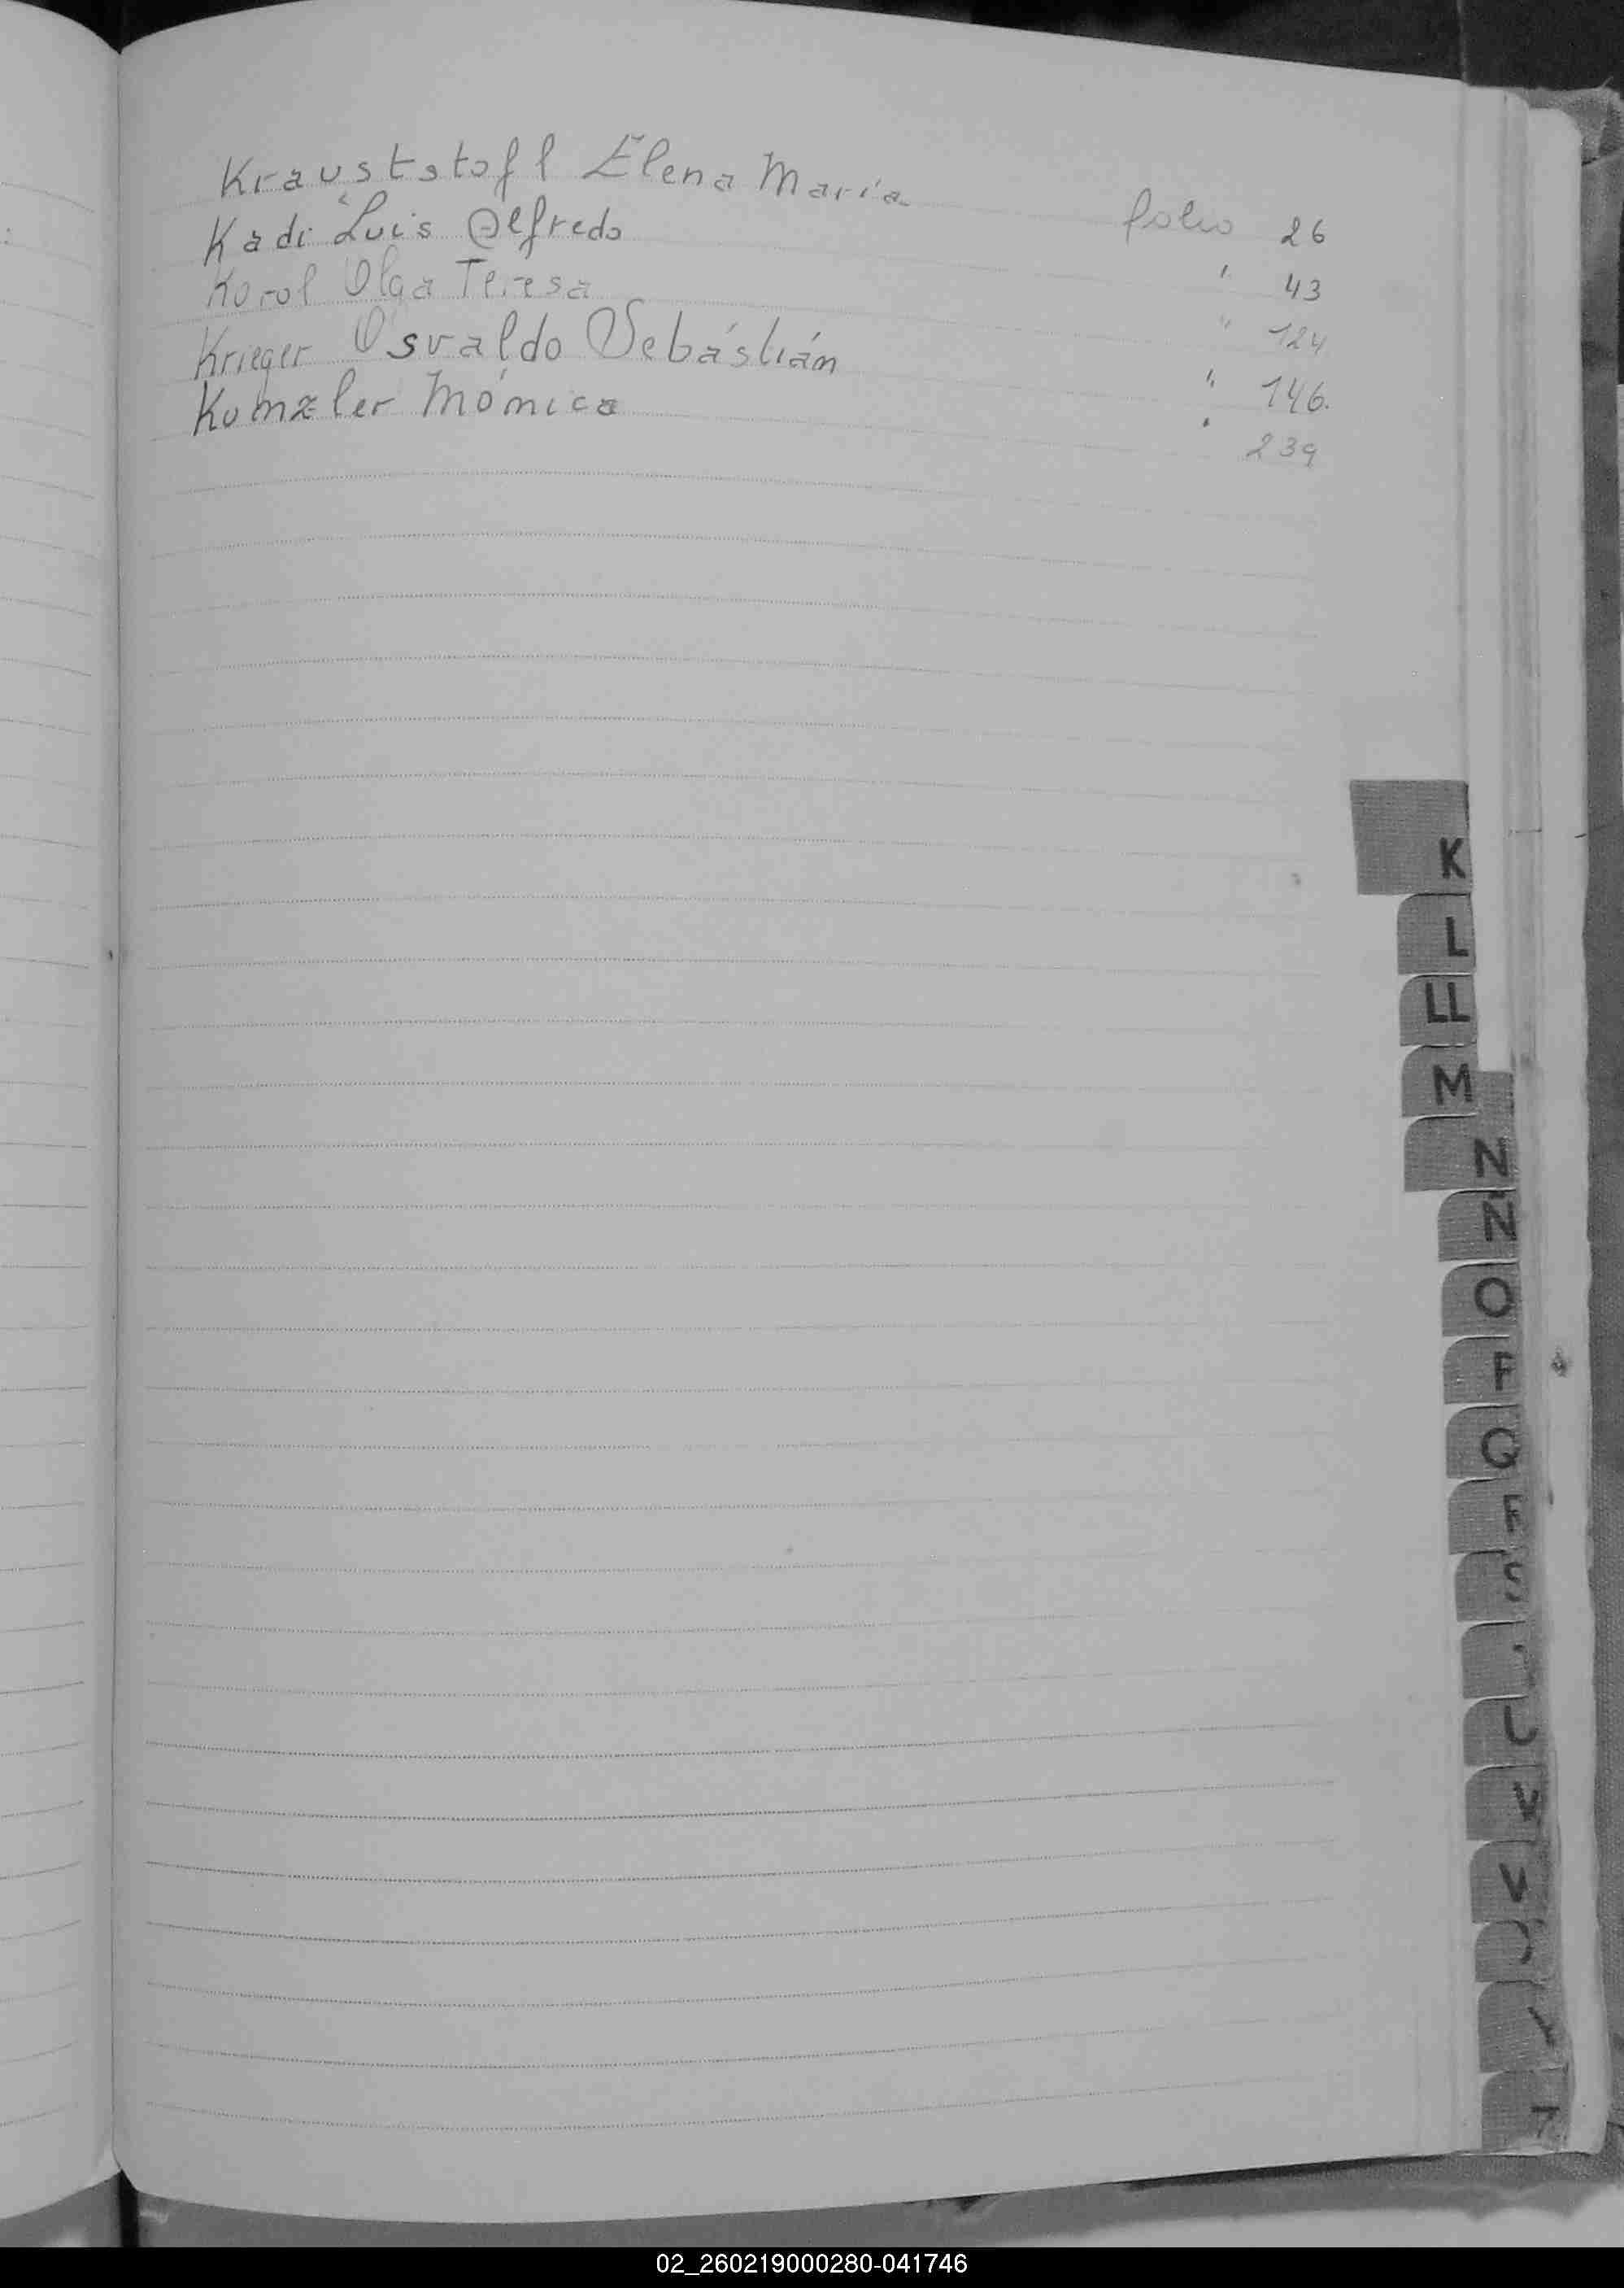 Krauststofl Elena María folio 26
Kadi Luis Alfredo " 43
Korol Olga Teresa " 124
Krieger Osvaldo Sebástián " 146.
Kumzler Mónica " 239
K
L
LL
M
N
Ñ
O
P
Q
R
S
U
V
02_260219000280-041746